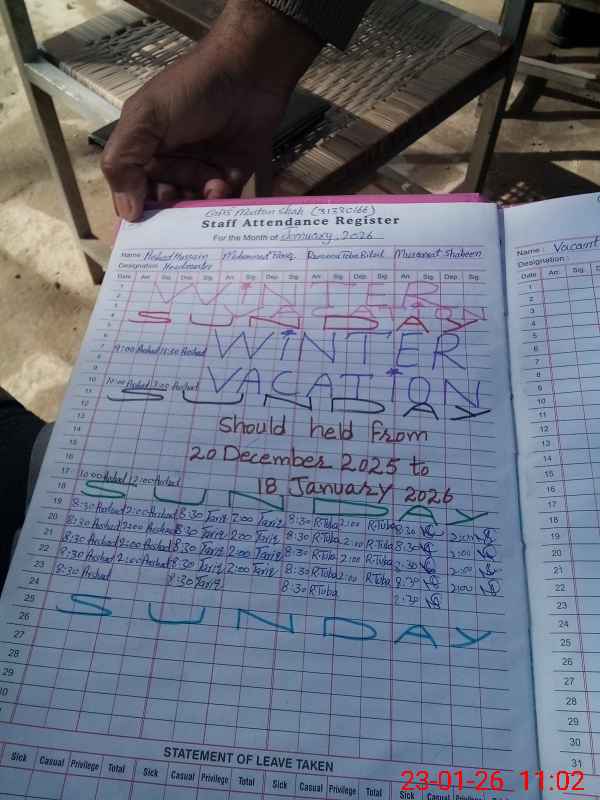 GGPS Muttan Shah (31330166)
Staff Attendance Register
For the Month of January, 2026
Name Arshad Hussain Mohammad Tariq Rameena Tuba Batool Mussarrat Shaheen
Designation Headmaster
Date Arr. Sig. Dep. Sig. Arr. Sig. Dep. Sig. Arr. Sig. Dep. Sig. Arr. Sig. Dep. Sig.
1
2
WINTER
3
VACATION
4 SUNDAY
5
6
7
WINTER
8 9:00 Arshad 12:50 Arshad
9
VACATION
10 10:00 Arshad 2:00 Arshad
11 SUNDAY
12
13 Should held from
14
15 20 December 2025 to
16
17 10:00 Arshad 12:00 Arshad 18 January 2026
18 SUNDAY
19 8:30 Arshad 2:00 Arshad 8:30 Tariq 2:00 Tariq 8:30 R-Tuba 2:00 R-Tuba 8:30 2:00
20 8:30 Arshad 2:00 Arshad 8:30 Tariq 2:00 Tariq 8:30 R-Tuba 2:00 R-Tuba 8:30 2:00
21 8:30 Arshad 2:00 Arshad 8:30 Tariq 2:00 Tariq 8:30 R-Tuba 2:00 R-Tuba 8:30 2:00
22 8:30 Arshad 2:00 Arshad 8:30 Tariq 2:00 Tariq 8:30 R-Tuba 2:00 R-Tuba 8:30 2:00
23 8:30 Arshad 8:30 Tariq 8:30 R-Tuba 8:30
24
25 SUNDAY
26
27
28
29
30
STATEMENT OF LEAVE TAKEN
Sick Casual Privilege Total Sick Casual Privilege Total Sick Casual Privilege Total Sick Casual Privilege Total
Name : Vacant
Designation :
Date Arr. Sig.
1
2
3
4
5
6
7
8
9
10
11
12
13
14
15
16
17
18
19
20
21
22
23
24
25
26
27
28
29
30
31
23-01-26 11:02